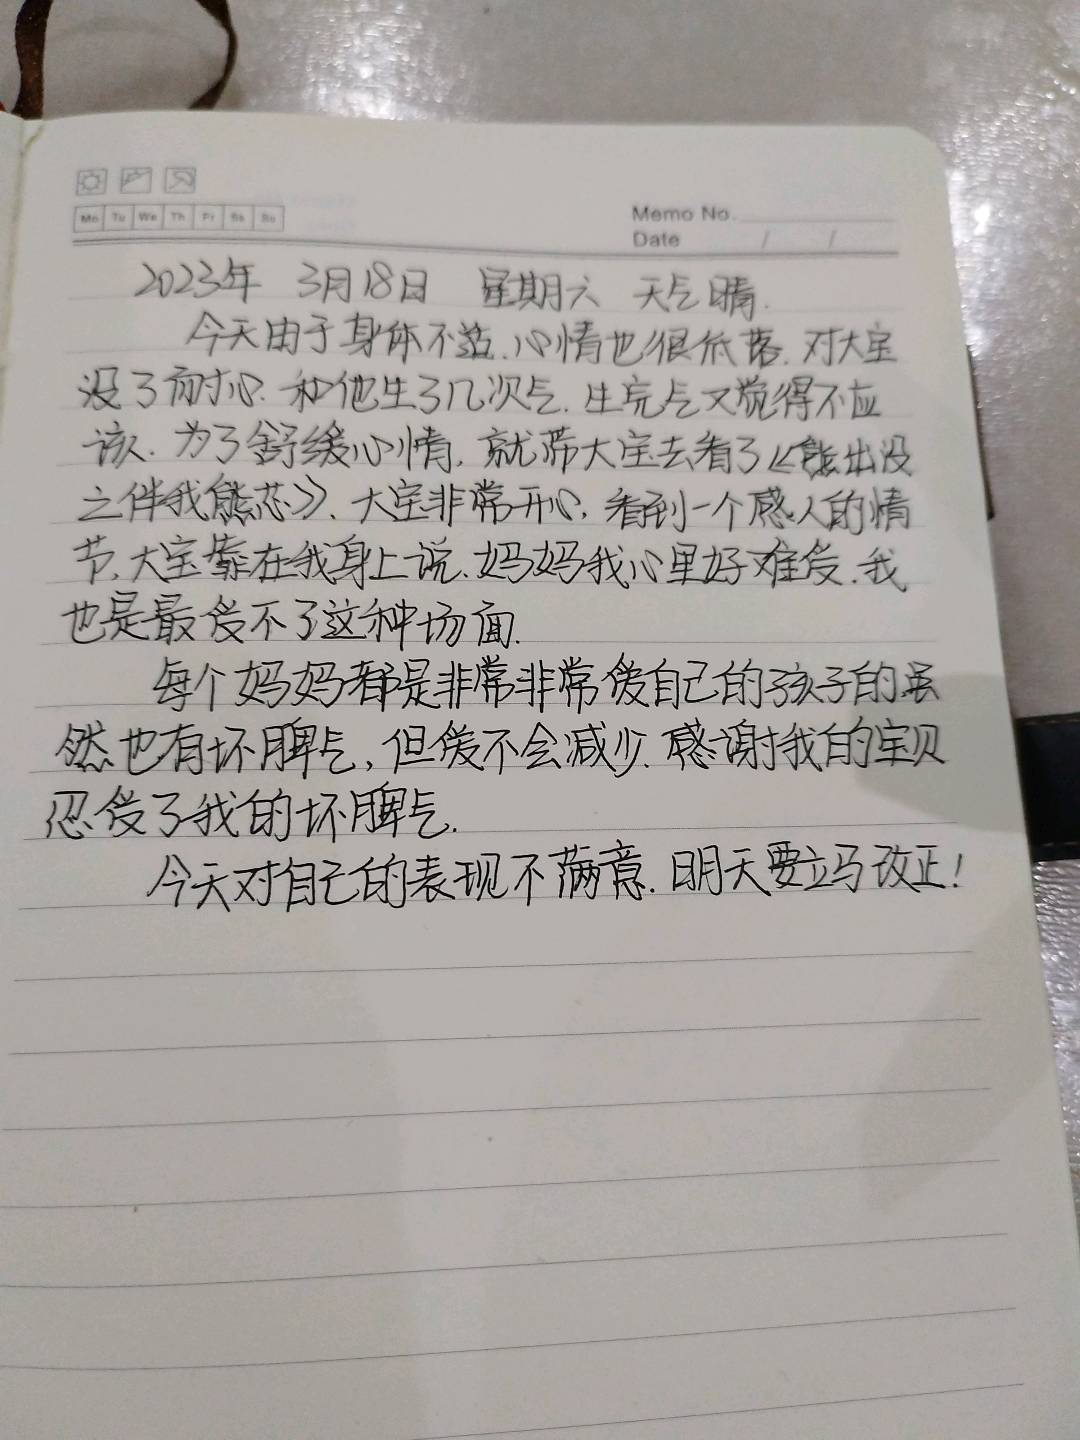 Mo Tu We Th Fr Sa Su
Memo No.
Date / /
2023年 3月18日 星期六 天气晴.
今天由于身体不适.心情也很低落.对大宝
没了耐心.和他生了几次气.生完气又觉得不应
该.为了舒缓心情,就带大宝去看了《熊出没
之伴我熊芯》.大宝非常开心,看到一个感人的情
节,大宝靠在我身上说.妈妈我心里好难受.我
也是最受不了这种场面.
每个妈妈都是非常非常爱自己的孩子的虽
然也有坏脾气,但爱不会减少.感谢我的宝贝
忍受了我的坏脾气.
今天对自己的表现不满意.明天要立马改正!